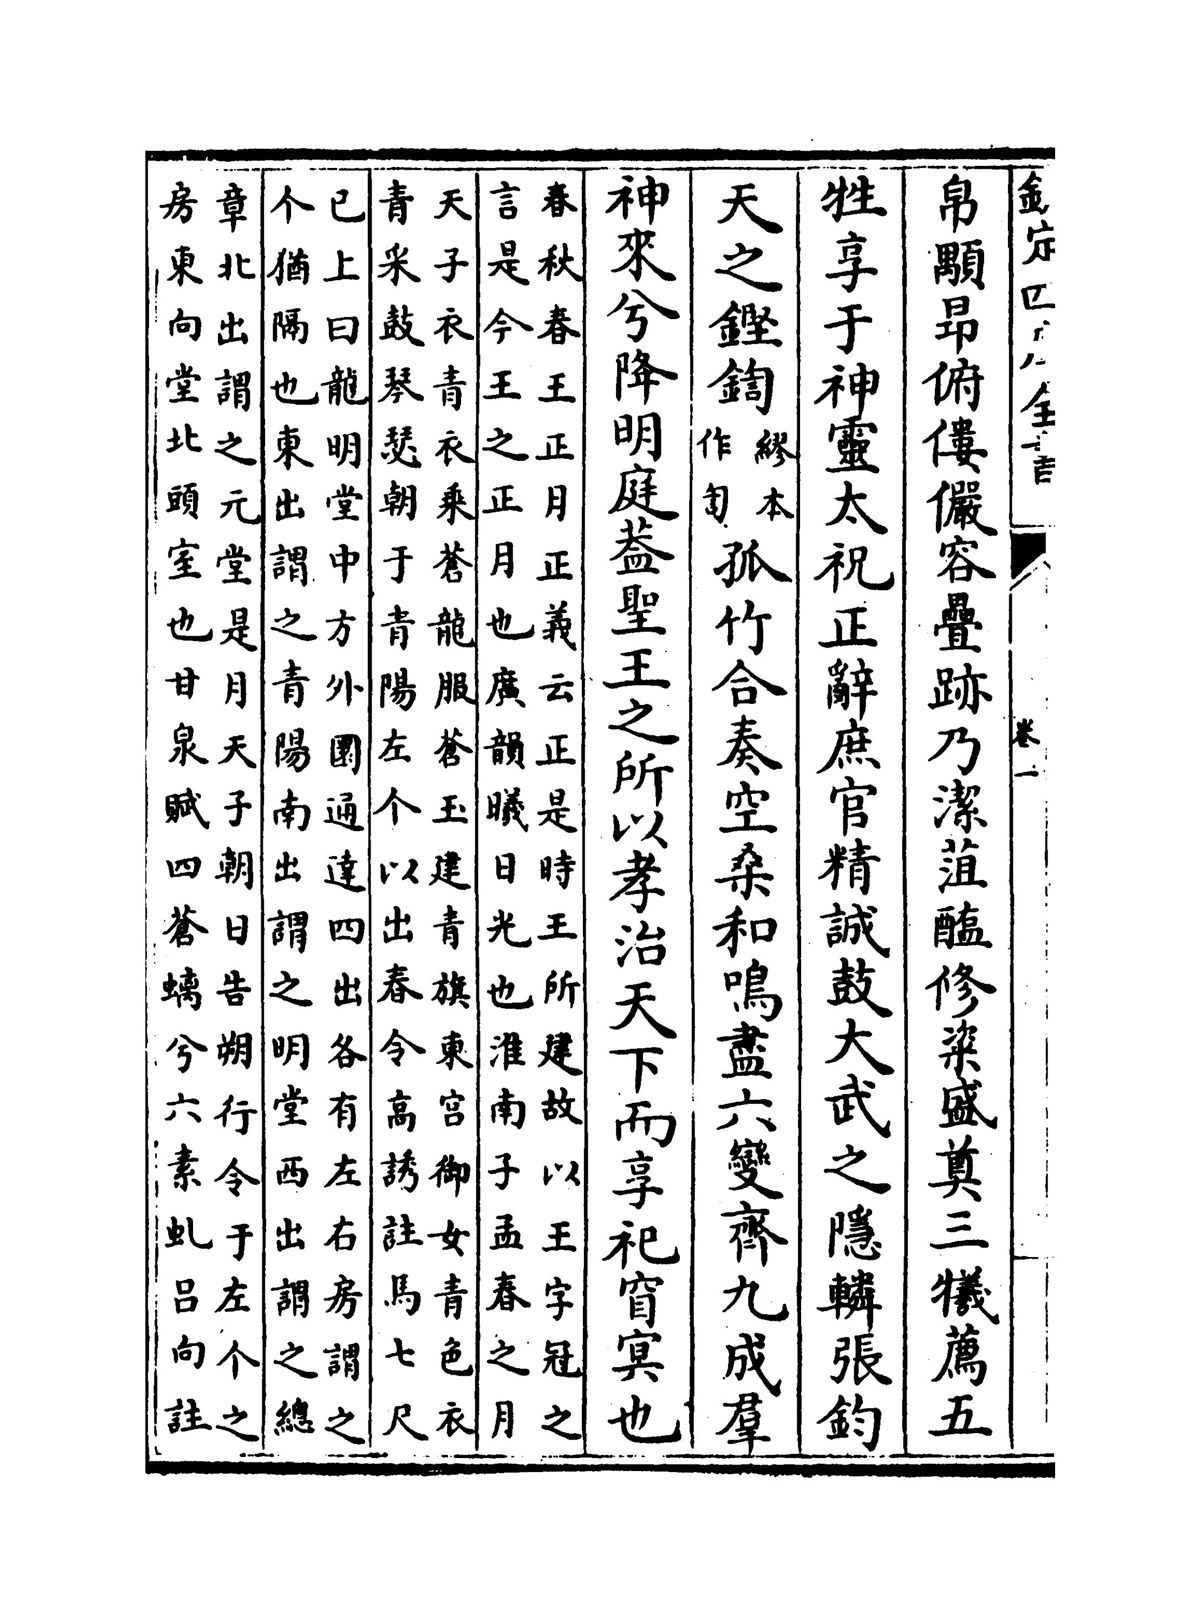 欽定四庫全書
卷一
帛顒昂俯僂儼容疊跡乃潔菹醢修粢盛奠三犧薦五
牲享于神靈太祝正辭庶官精誠鼓大武之隱轔張鈞
天之鏗鍧繆本作訇孤竹合奏空桑和鳴盡六變齊九成羣
神來兮降明庭葢聖王之所以孝治天下而享祀窅冥也
春秋春王正月正義云正是時王所建故以王字冠之
言是今王之正月也廣韻曦日光也淮南子孟春之月
天子衣青衣乘蒼龍服蒼玉建青旗東宮御女青色衣
青采鼓琴瑟朝于青陽左个以出春令高誘註馬七尺
已上曰龍明堂中方外圜通達四出各有左右房謂之
个猶隔也東出謂之青陽南出謂之明堂西出謂之總
章北出謂之元堂是月天子朝日告朔行令于左个之
房東向堂北頭室也甘泉賦四蒼螭兮六素虬呂向註